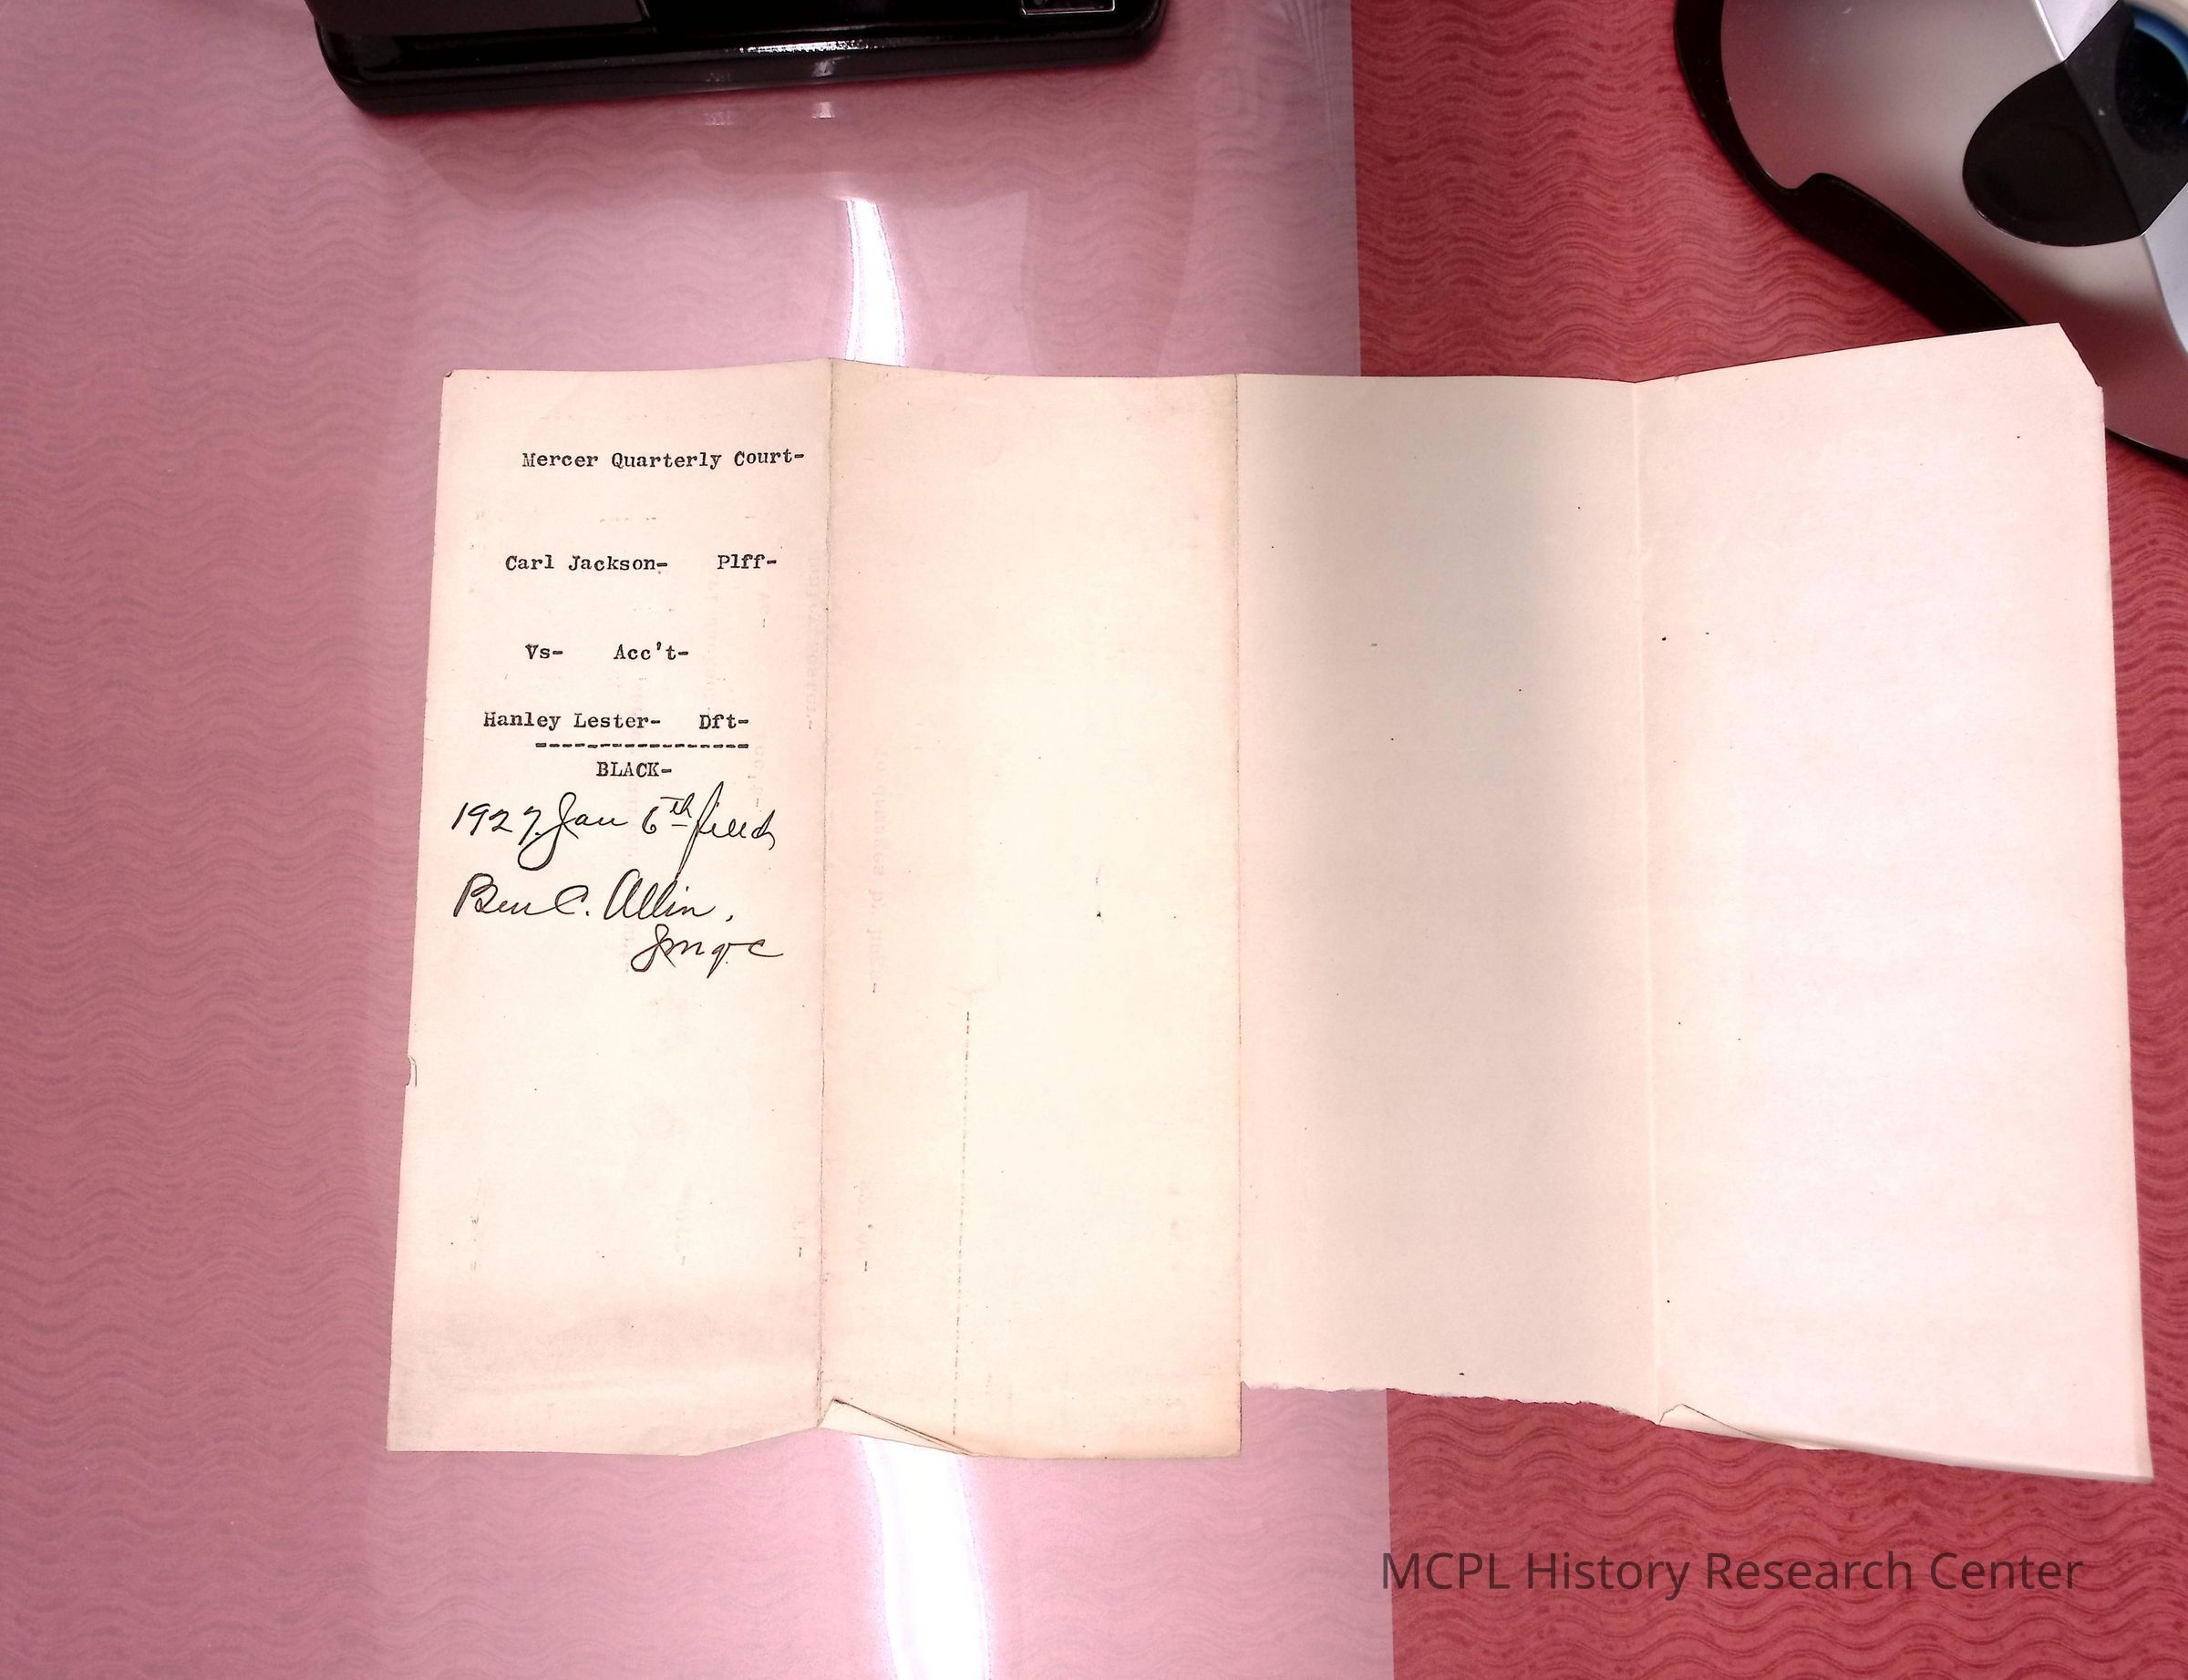 Mercer Quarterly Court-
Carl Jackson- Plff-
Vs- Acc't-
Hanley Lester- Dft-
-----------------
BLACK-
1927. Jan 6th filed
Ben C. Allin,
JMQC
MCPL History Research Center